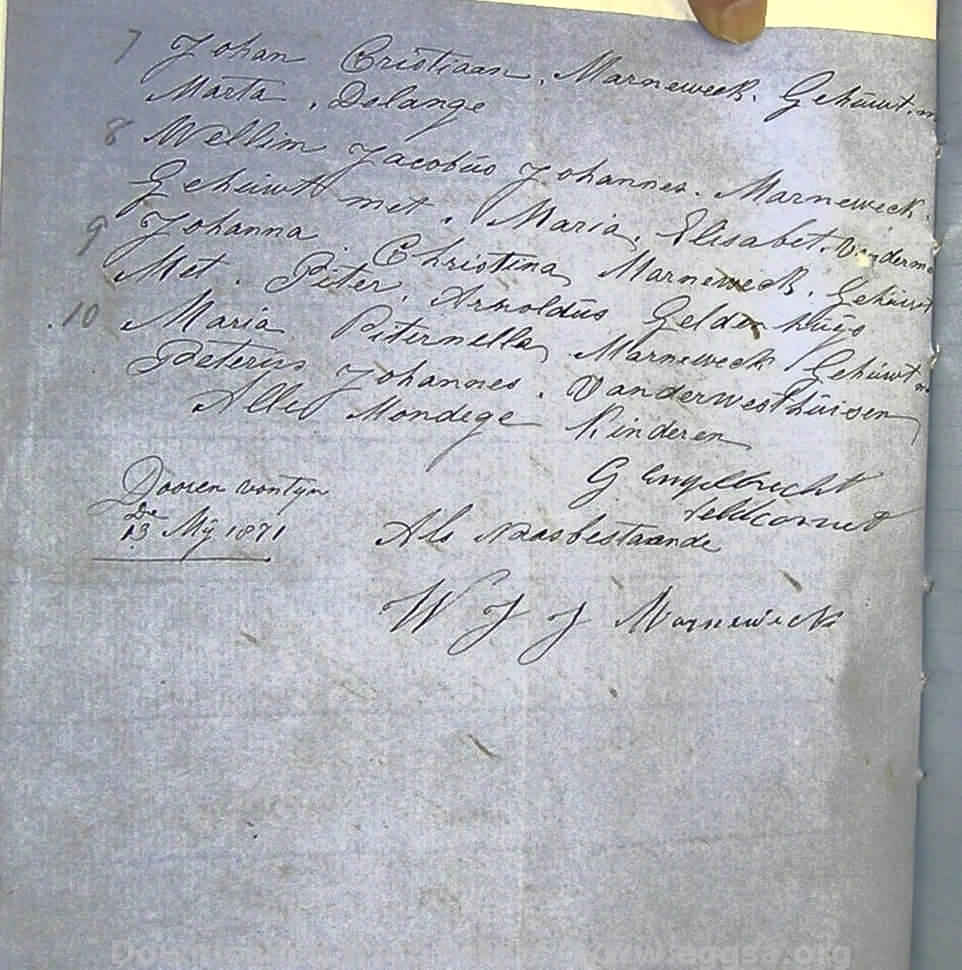 7 Johan Cristiaan. Marneweck. Gehuwt. m
Marta. Delange
8 Wellim Jacobus Johannes. Marneweck.
Gehuwt met. Maria. Elisabet. Vanderme
9 Johanna. Christina Marneweck. Gehuwt
Met. Piter. Arnoldus Geldenhuijs
10 Maria Piternella Marneweck Gehuwt
Peterus Johannes. Vanderwesthuisen
Alle Mondege Kinderen
G Engelbrecht
Dooren vontyn
Veldcornet
De
13 Mij 1871
Als Naasbestaande
W J J Marneweck